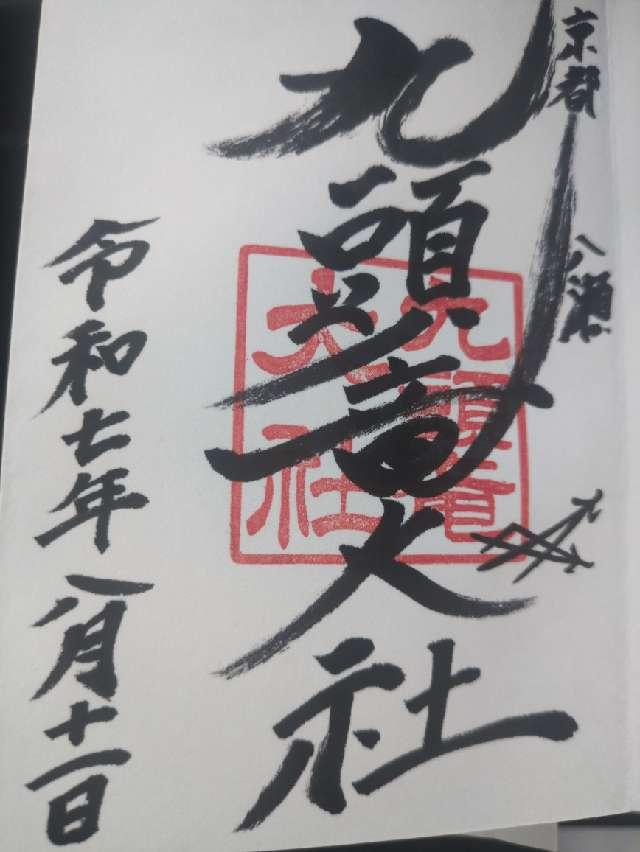 京都 八瀬
九頭竜大社
九頭竜
大社
令和七年八月十一日